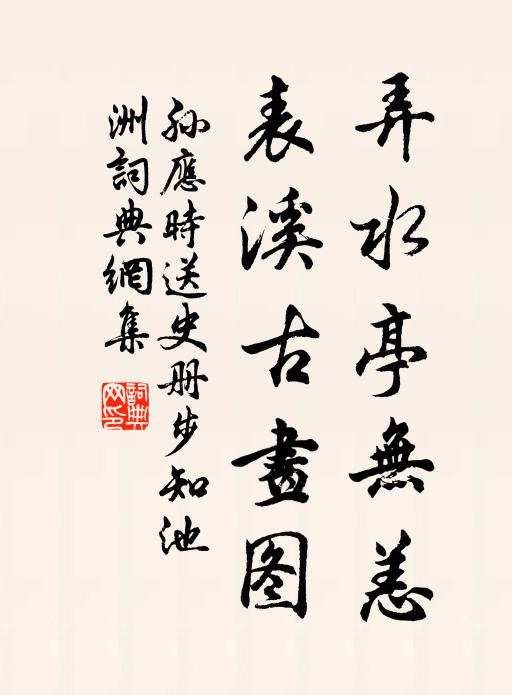 弄水亭無恙
表溪古畫图
孙應時送史册步知池
洲詞典網集
詞典网印